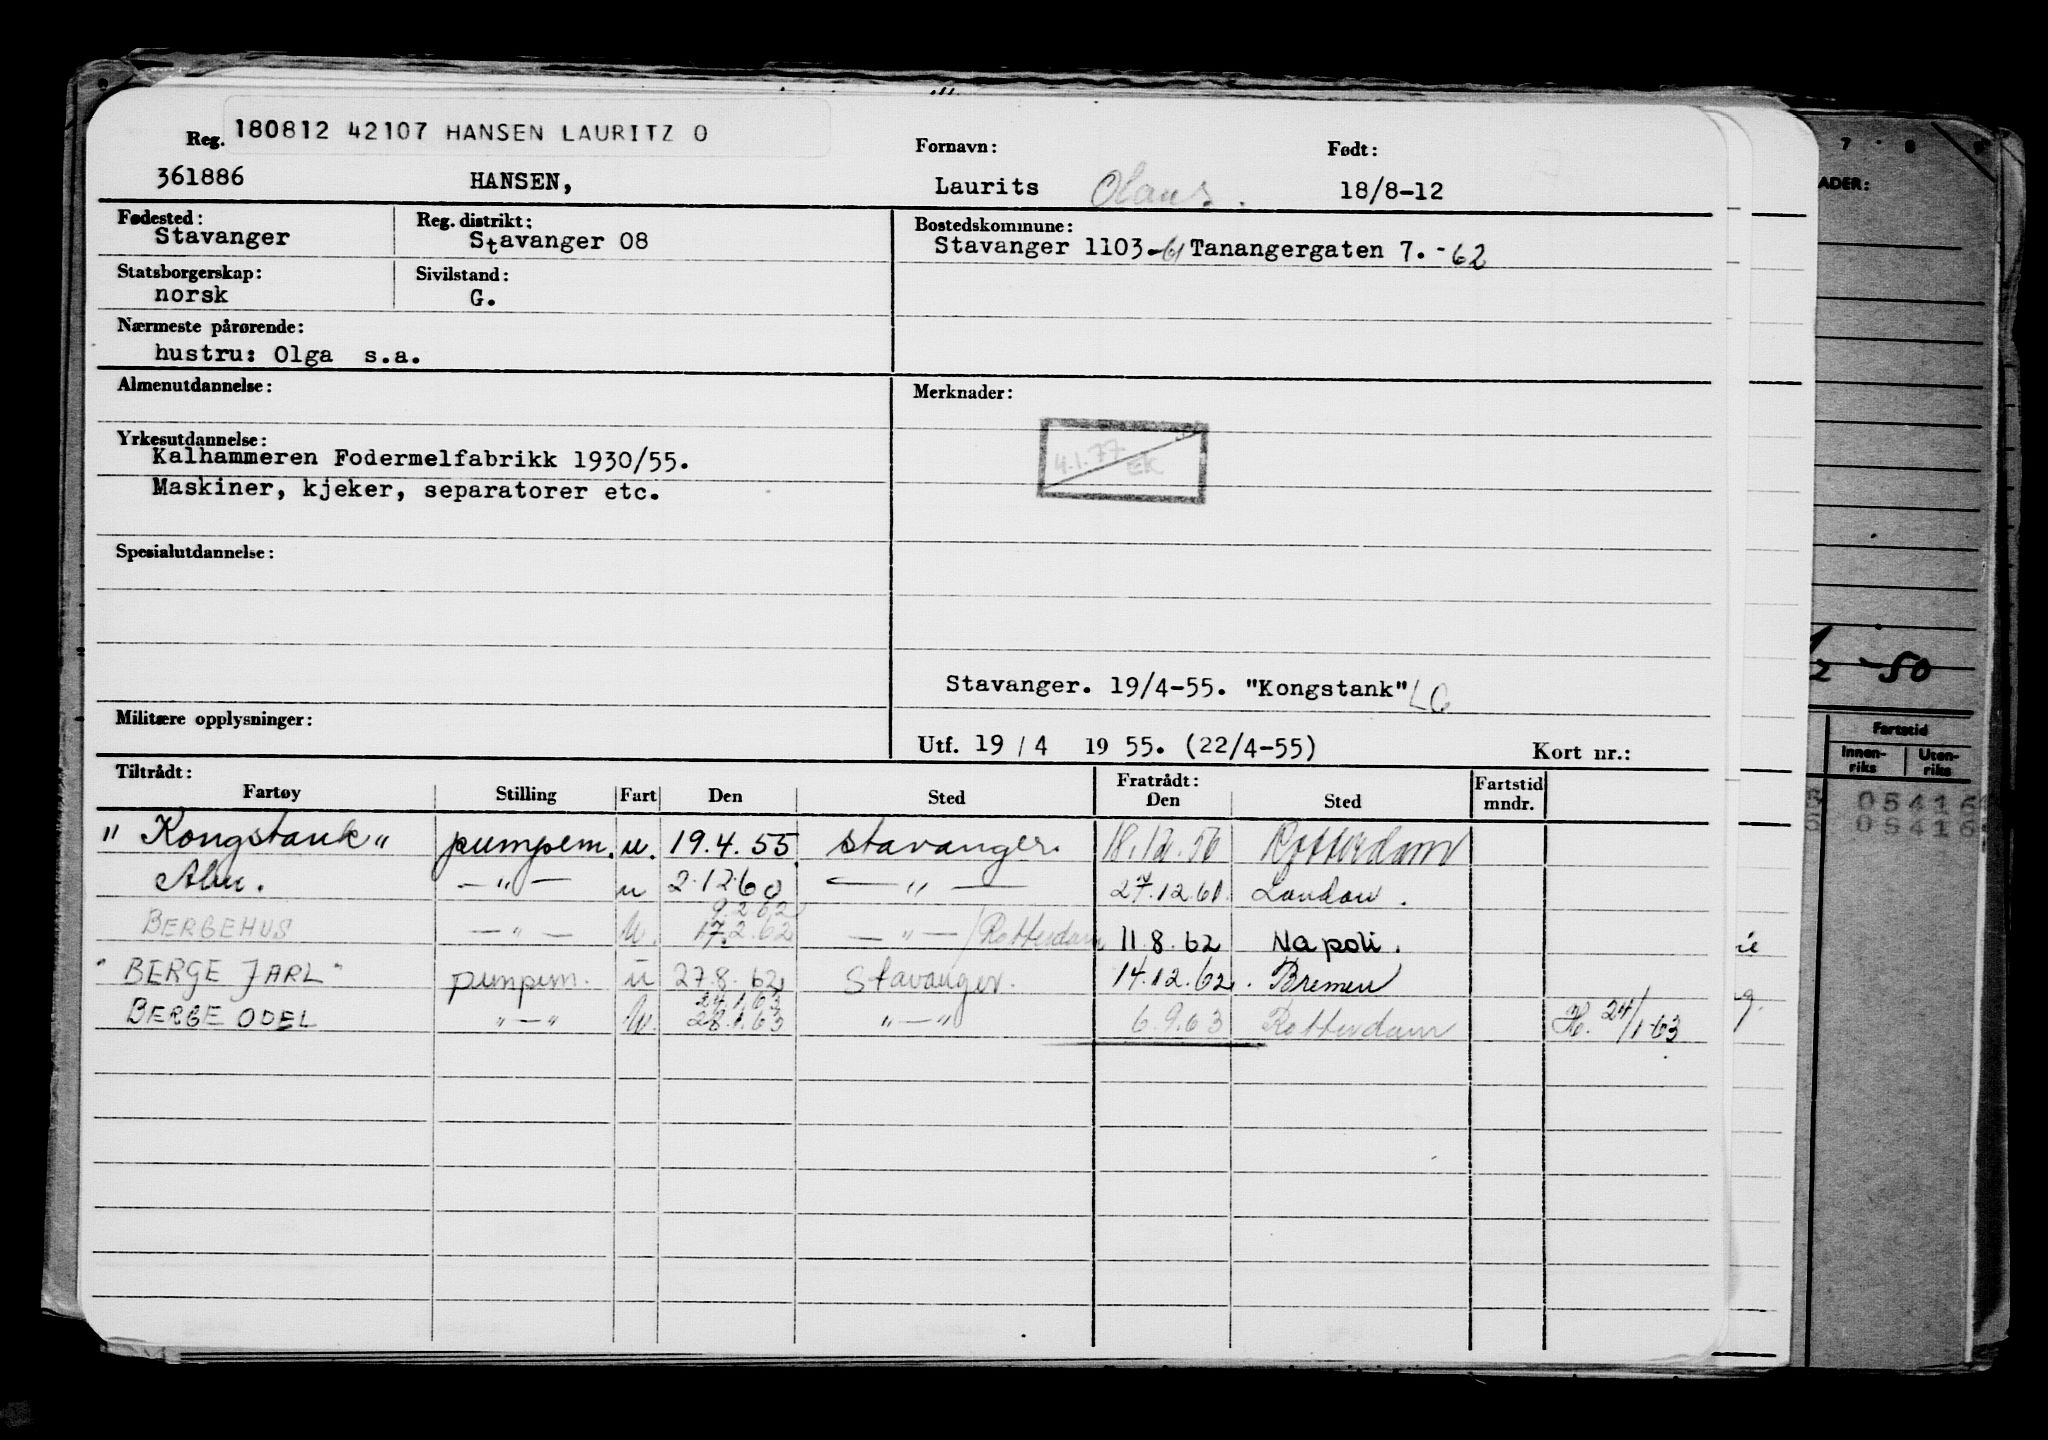 180812 42107 HANSEN LAURITZ O
Reg. 361886 HANSEN, Fornavn: Laurits Olaus. Født: 18/8-12
Fødested: Stavanger Reg. distrikt: Stavanger 08 Bostedskommune: Stavanger 1103-61 Tanangergaten 7. -62
Statsborgerskap: norsk Sivilstand: G.
Nærmeste pårørende:
hustru: Olga s.a.
Almenutdannelse: Merknader:
Yrkesutdannelse:
Kalhammeren Fodermelfabrikk 1930/55.
Maskiner, kjeker, separatorer etc.
4.1.77 EK
Spesialutdannelse:
Stavanger. 19/4-55. "Kongstank" LG
Militære opplysninger: Utf. 19/4 1955. (22/4-55) Kort nr.:
Tiltrådt: Fratrådt: Fartstid
Fartøy Stilling Fart Den Sted Den Sted mndr.
"Kongstank" pumpem. u. 19.4.55. Stavanger. 18.12.56 Rotterdam
— " — u 2.12.60 — " — 27.12.61. London.
9.2.62
BERGEHUS — " — U. 17.2.62 — " — / Rotterdam 11.8.62 Napoli.
"BERGE JARL" pumpem. u 27.8.62 Stavanger. 14.12.62. Bremen
24.1.63
BERGE ODEL " — " U. 28.1.63 " — " 6.9.63 Rotterdam H. 24/1-63
7 8 9
ADER:
-50
Fartstid
Innen-riks Uten-riks
05416
05416